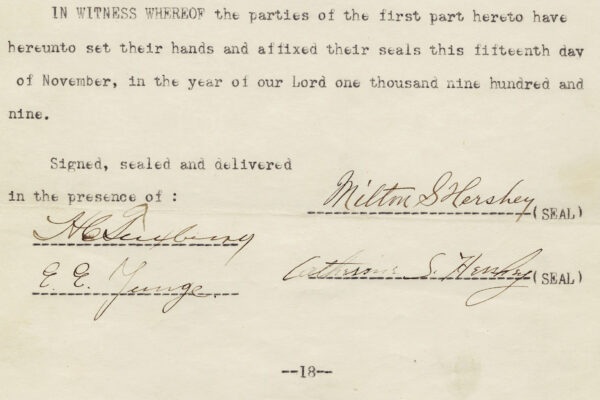 IN WITNESS WHEREOF the parties of the first part hereto have
hereunto set their hands and affixed their seals this fifteenth day
of November, in the year of our Lord one thousand nine hundred and
nine.
Signed, sealed and delivered
in the presence of :
Milton S Hershey (SEAL)
E. E. Yunge.
Catherine S. Hershey (SEAL)
--18--